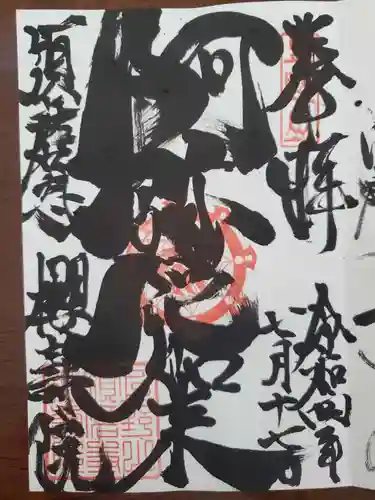 奉拝
令和四年
七月十七日
阿弥陀如来
須磨寺
櫻壽院